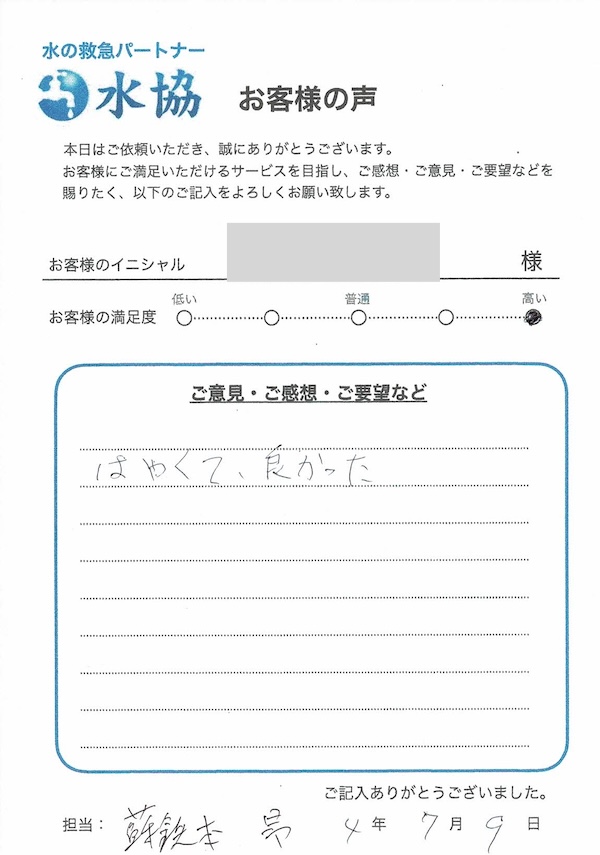 水の救急パートナー
水協 お客様の声
本日はご依頼いただき、誠にありがとうございます。
お客様にご満足いただけるサービスを目指し、ご感想・ご意見・ご要望などを
賜りたく、以下のご記入をよろしくお願い致します。
お客様のイニシャル 様
低い 普通 高い
お客様の満足度
ご意見・ご感想・ご要望など
はやくて、良かった
ご記入ありがとうございました。
担当： 本 昴 4年 7月 9日